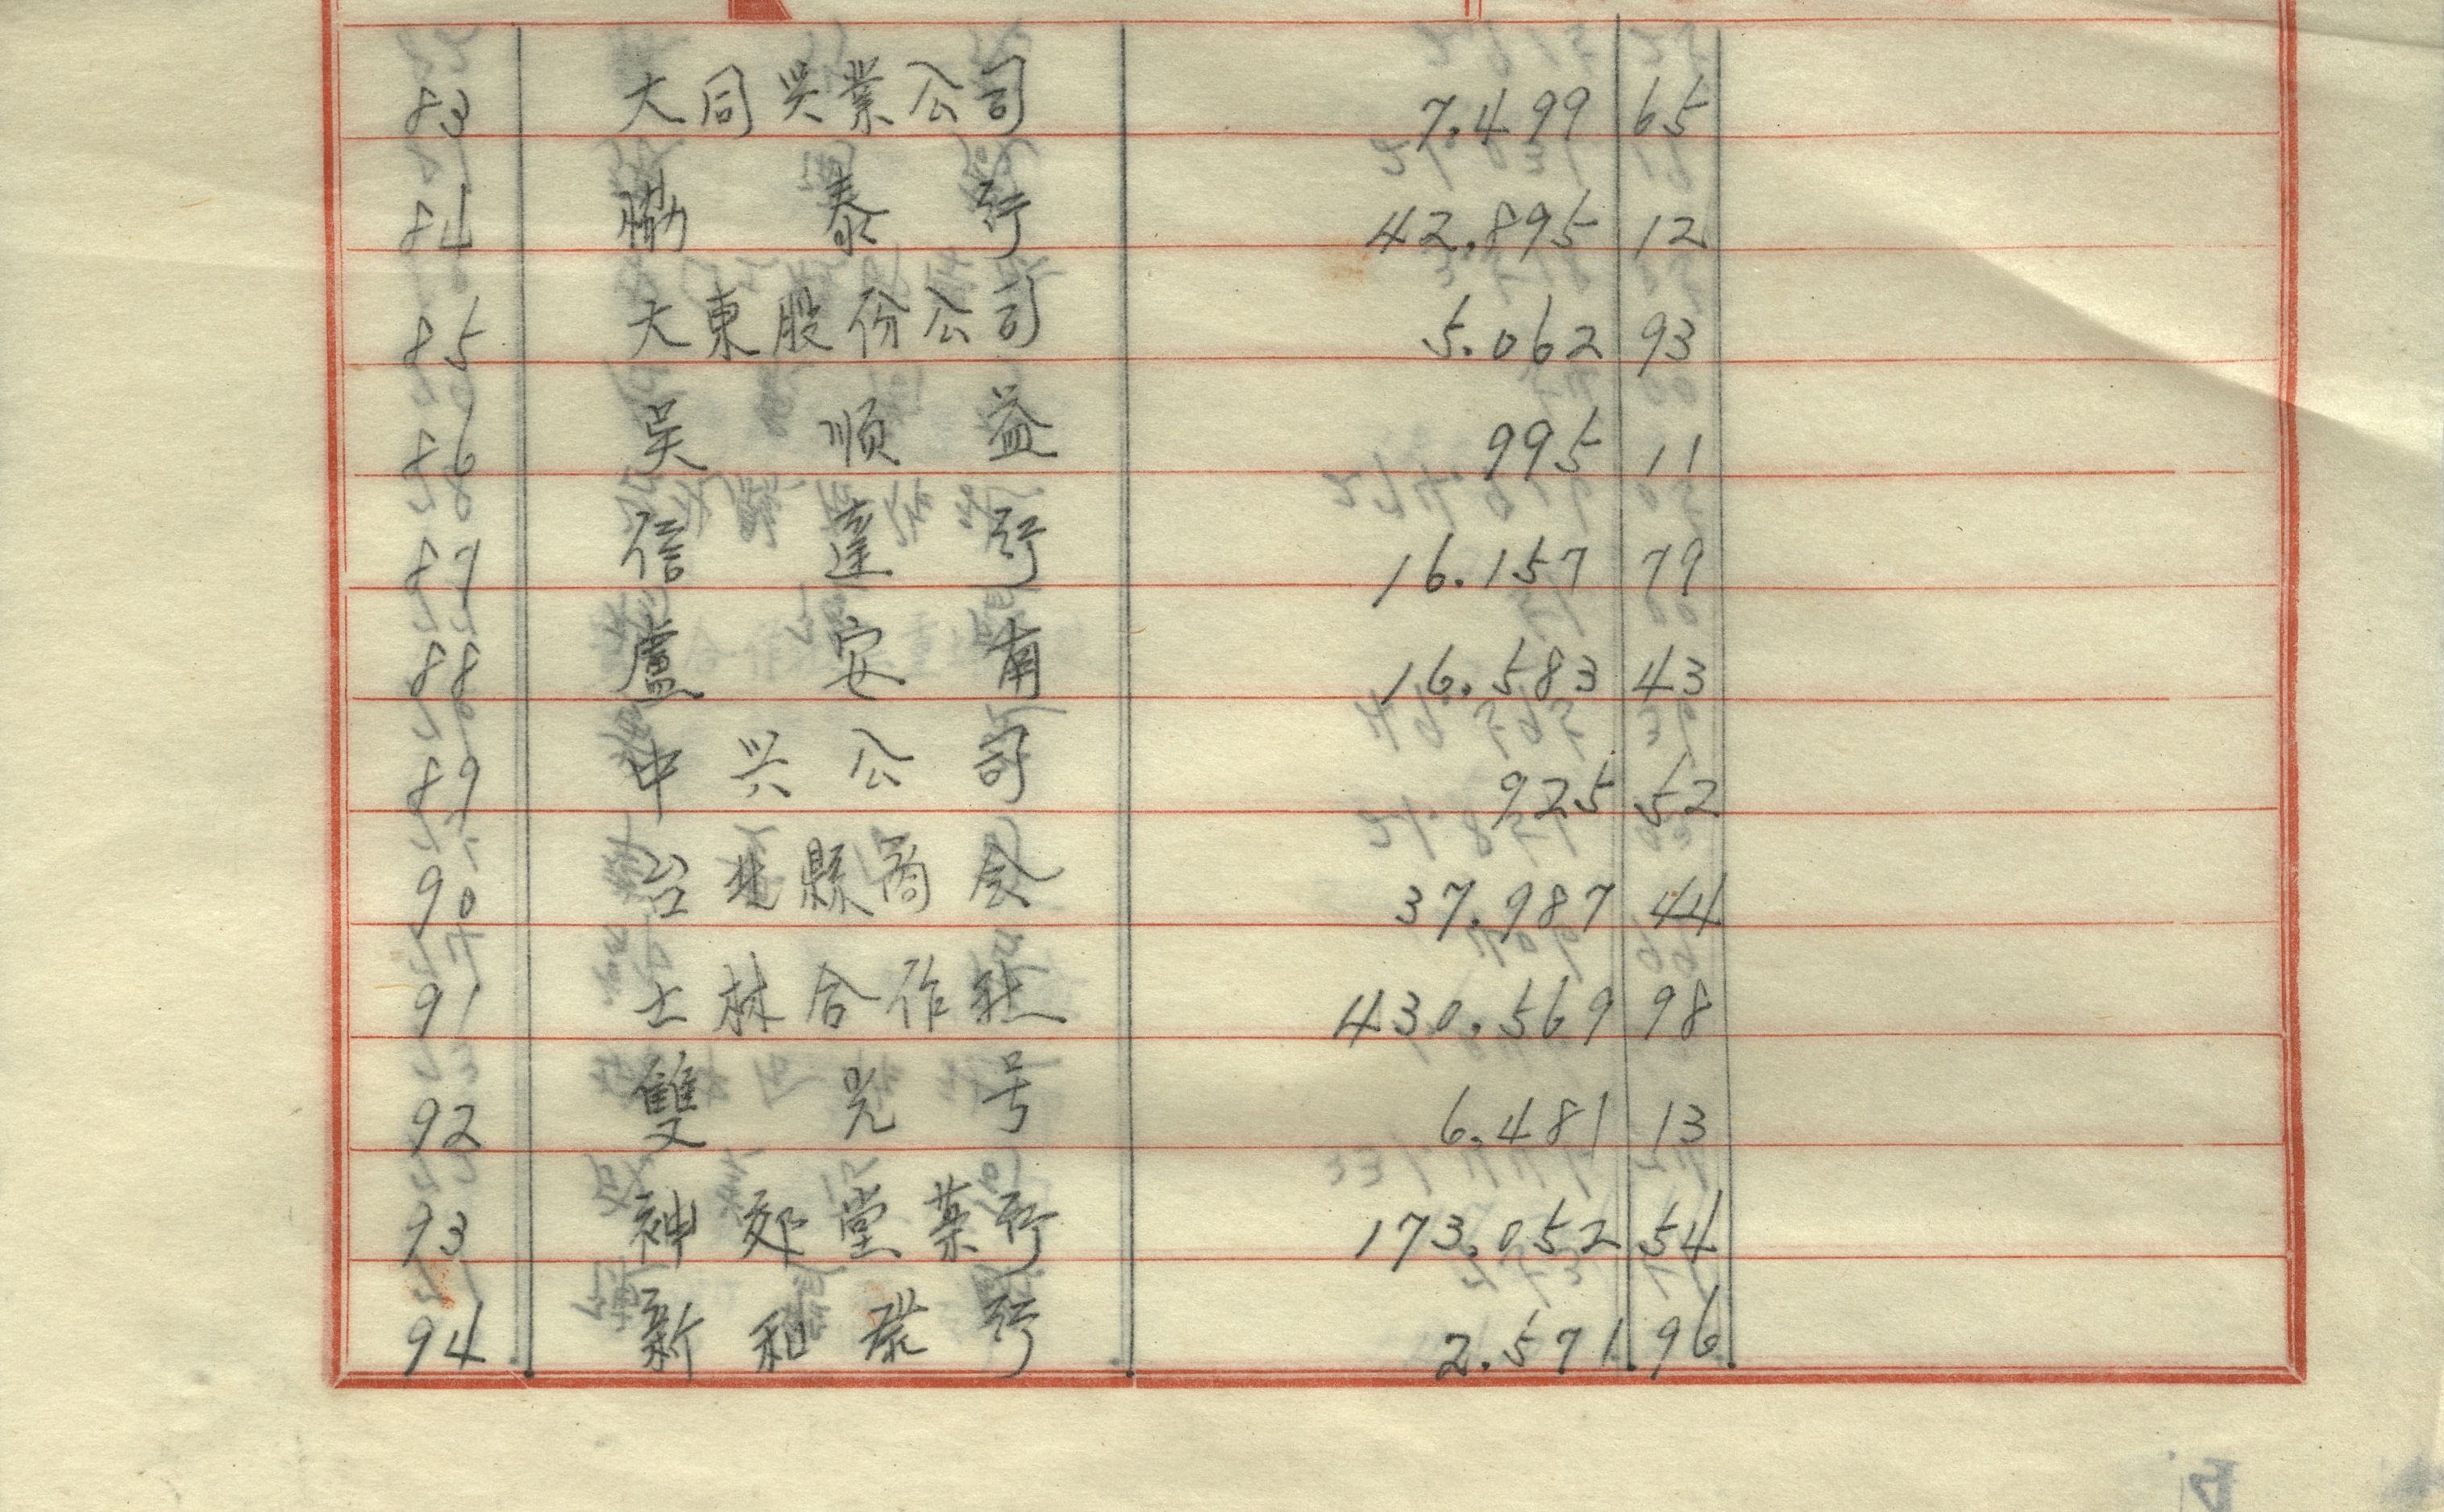 83 大同兴業公司 7.499 65
84 協泰行 42.895 12
85 大東股份公司 5.062 93
86 吴順益 995 11
87 信達行 16.157 79
88 盧安南 16.583 43
89 中兴公司 925 52
90 台北縣商会 37.987 44
91 士林合作社 430.569 98
92 雙光号 6.481 13
93 神郊堂葯行 173.052 54
94 新和泰行 2.571 96